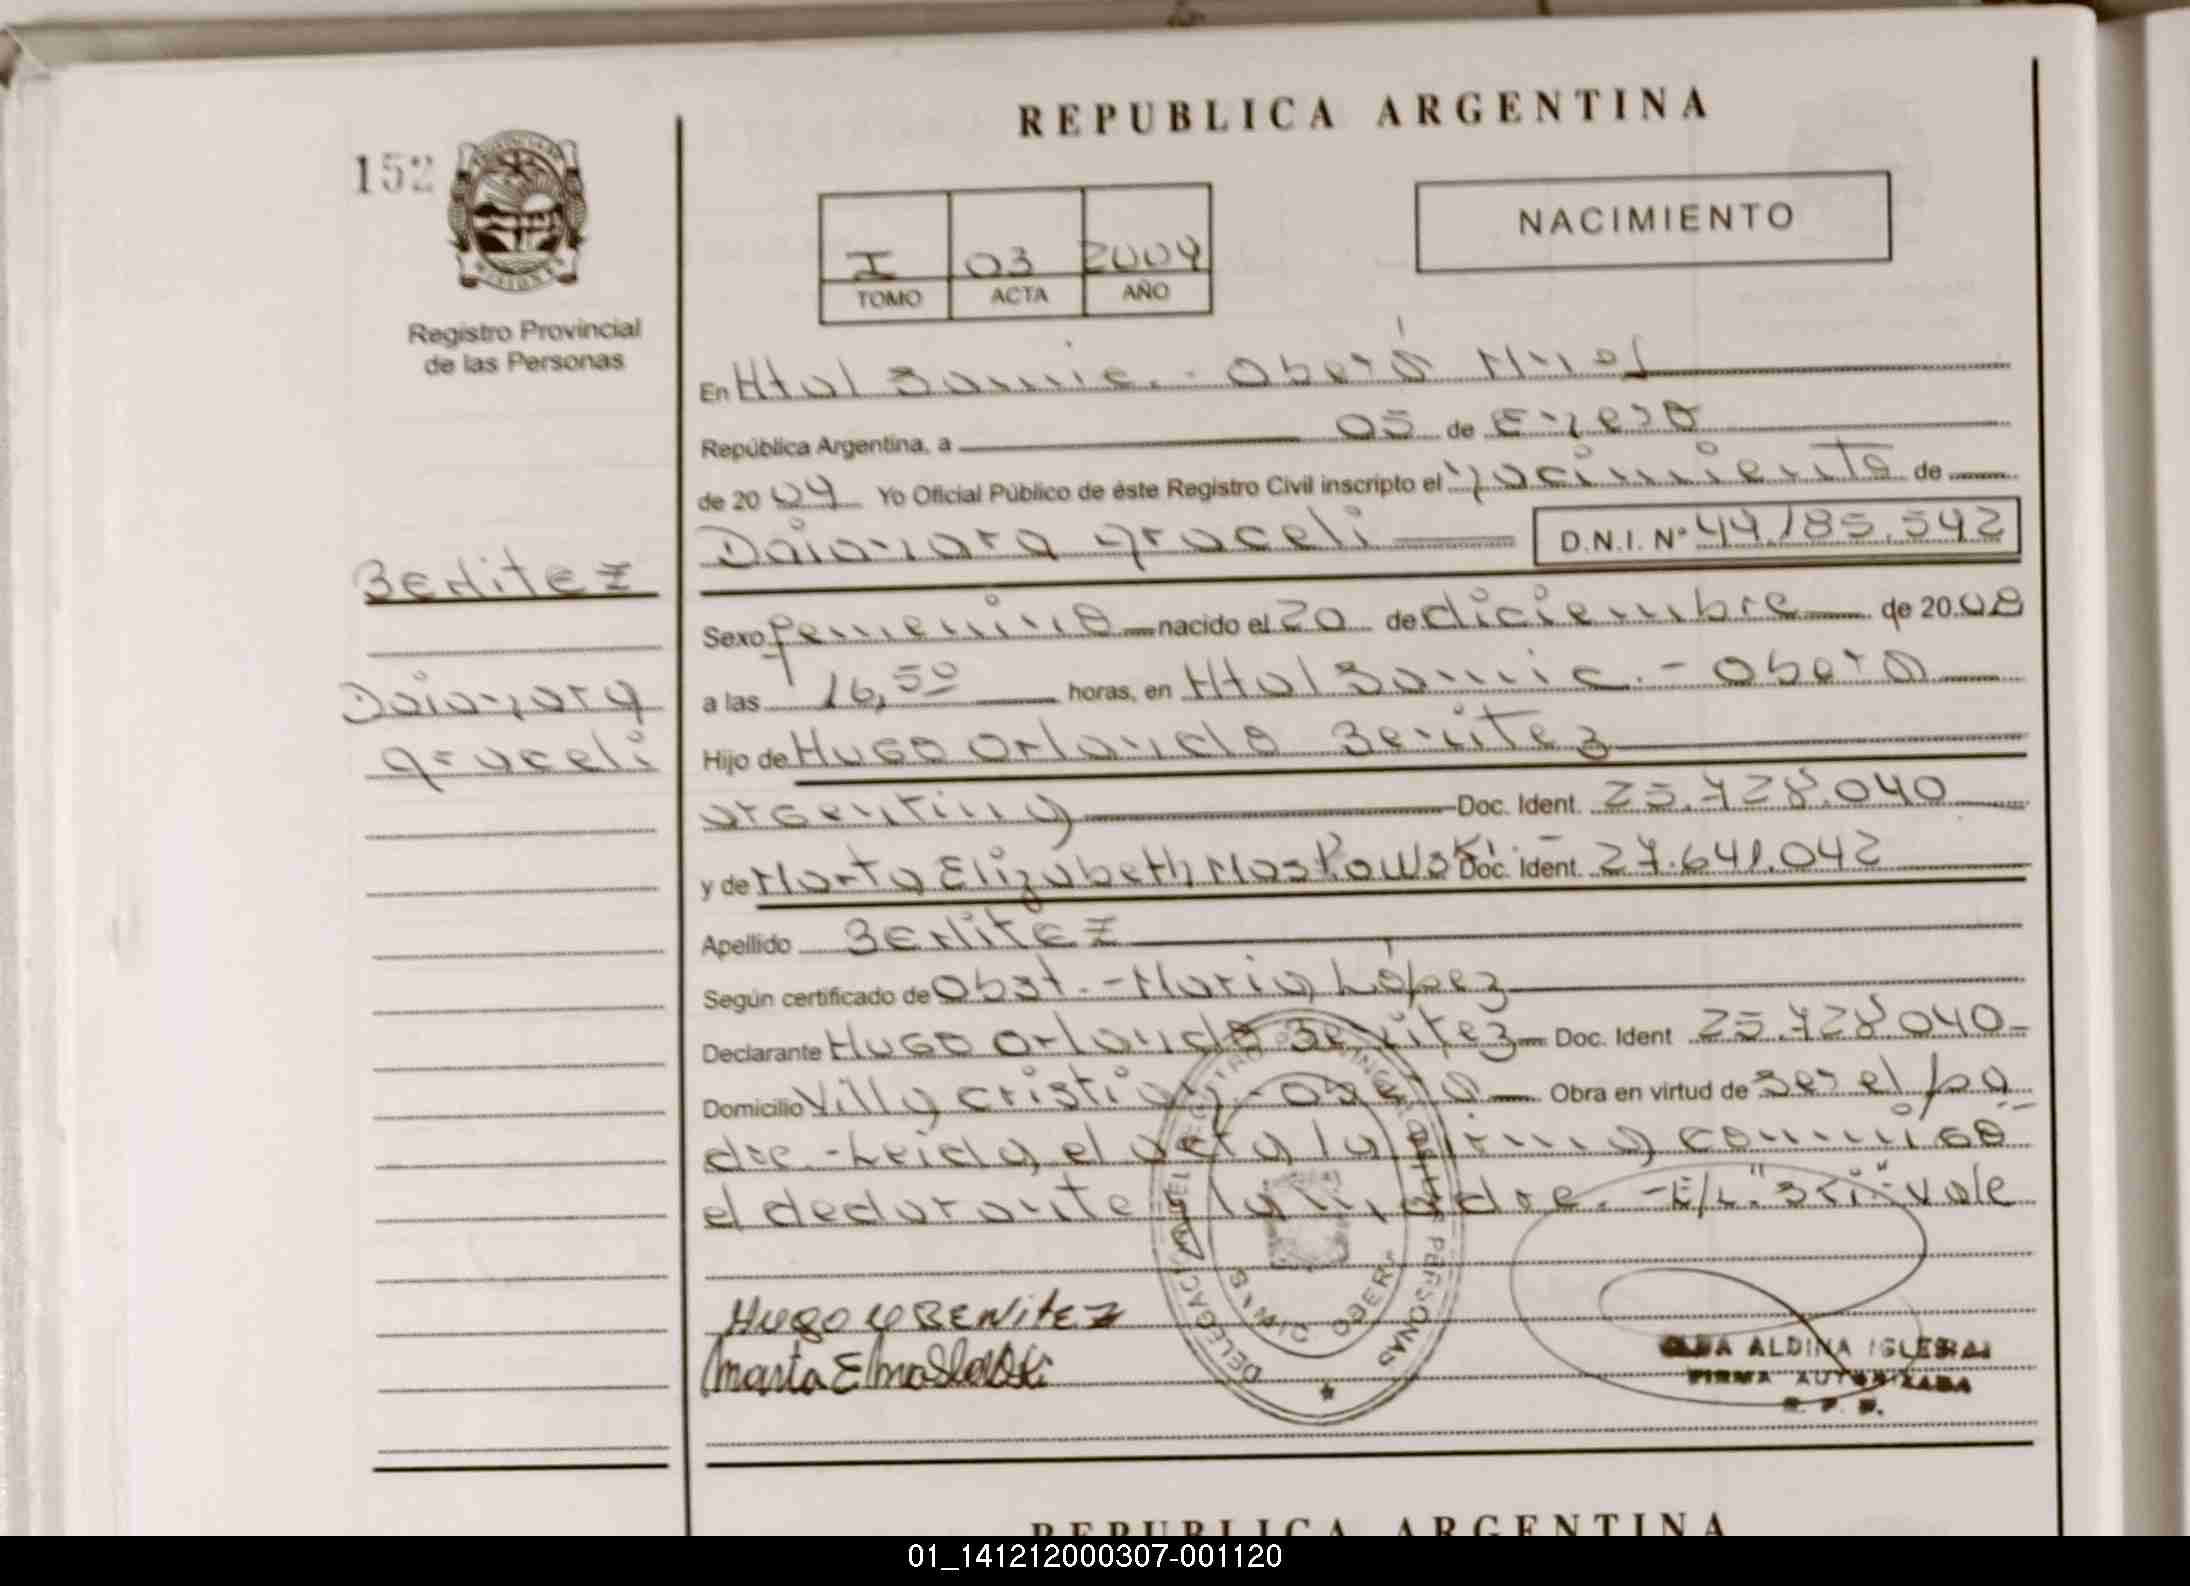 REPUBLICA ARGENTINA
152
NACIMIENTO
I 03 2009
TOMO ACTA AÑO
Registro Provincial
de las Personas
En Htal Samic. - Oberá Mnes
República Argentina, a 05 de Enero
de 2009 Yo Oficial Público de éste Registro Civil inscripto el nacimiento de
Daianara Araceli D.N.I. Nº 49.185.542
Benitez
Sexo femenino nacido el 20 de diciembre de 2008
Daianara
a las 16,50 horas, en Htal Samic. - Oberá
Araceli
Hijo de Hugo Orlando Benitez
argentina Doc. Ident. 25.428.040
y de Marta Elizabeth Maslowski. - Doc. Ident. 27.641.042
Apellido Benitez
Según certificado de Obst. - Maria López
Declarante Hugo Orlando Benitez Doc. Ident 25.428.040
Domicilio Villa Cristian - Oberá Obra en virtud de ser el pa
dre. - Leida el acta la firma conmigo
el declarante y la madre. - E/L. "sci" vale
HUGO BENITEZ
Marta E
DELEGACION DEL REGISTRO PROVINCIAL DE LAS PERSONAS
ALDINA IGLESIAS
FIRMA AUTORIZADA
R. P. P.
REPUBLICA ARGENTINA
01_141212000307-001120